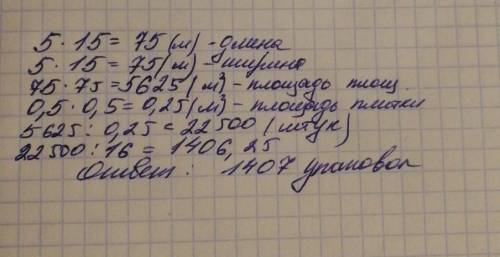 5 · 15 = 75 (м) - длина
5 · 15 = 75 (м) - ширина
75 · 75 = 5625 (м²) - площадь площ.
0,5 · 0,5 = 0,25 (м²) - площадь плитки
5625 : 0,25 = 22500 (штук)
22500 : 16 = 1406,25
Ответ: 1407 упаковок